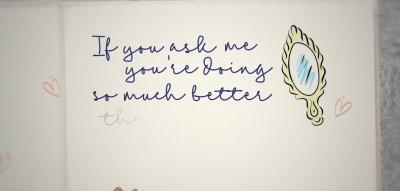 If you ask me
you're doing
so much better